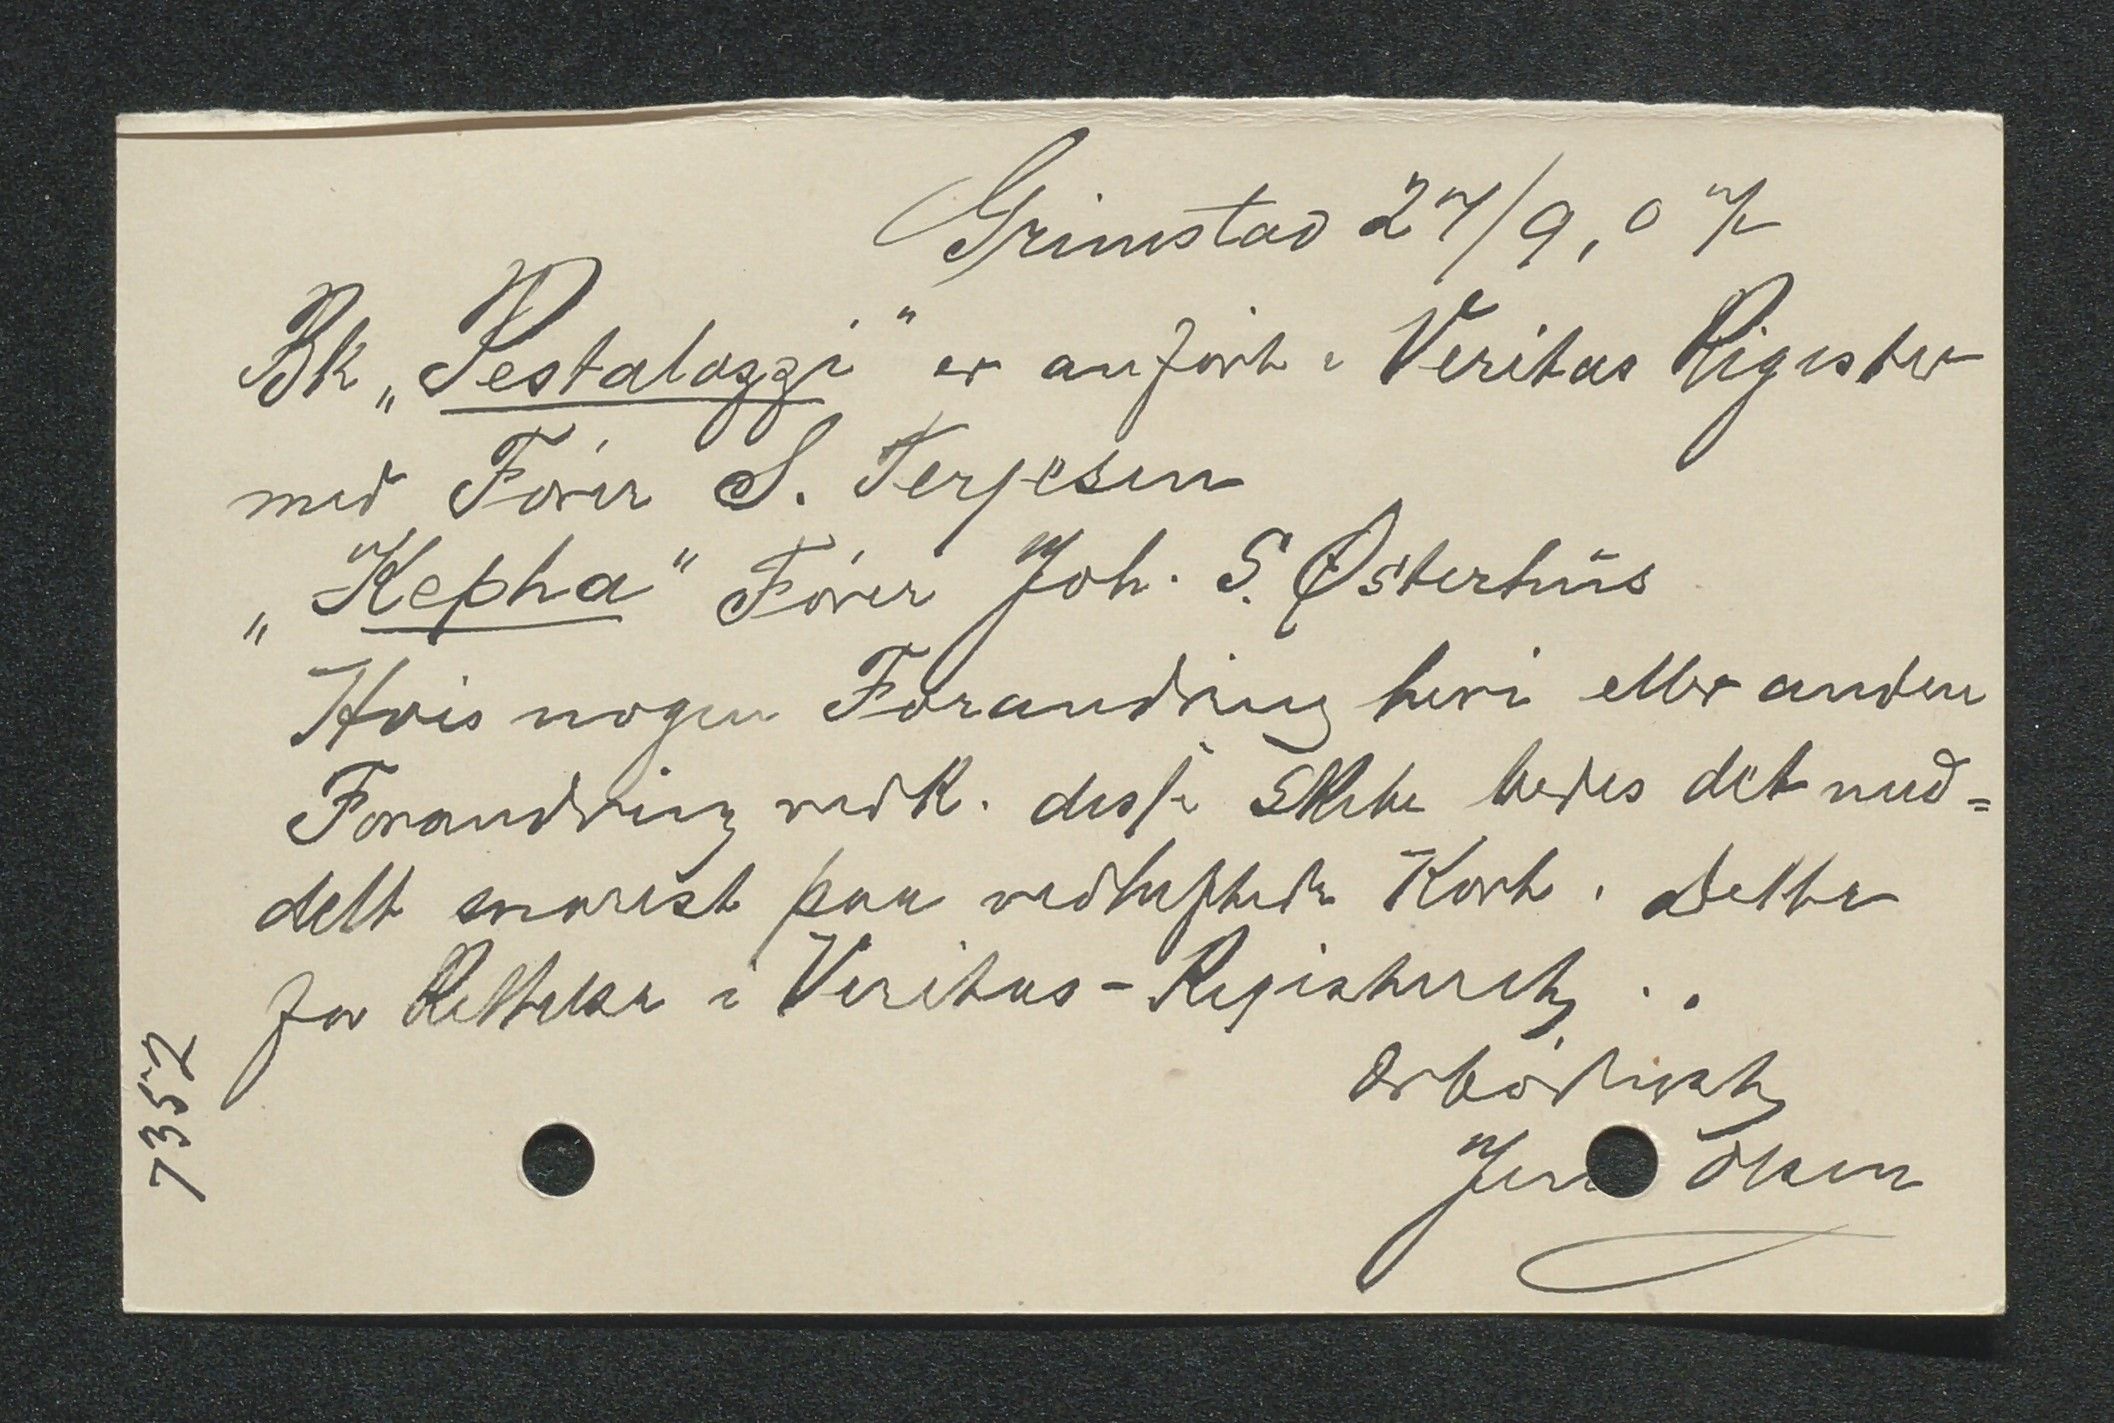 Grimstad 27/9, 07
Bk „Pestalozzi" er anført i Veritas Register
med Fører S. Terjesen
„Kepha" Fører Joh. S. Østerhus
Hvis nogen Forandring heri eller anden
Forandring vedk. disse Skibe bedes det med=
delt snarest paa vedheftede Kort. Dette
for Rettelse i Veritas-Registeret.
Ærbødigst
Jens Olsen
7352